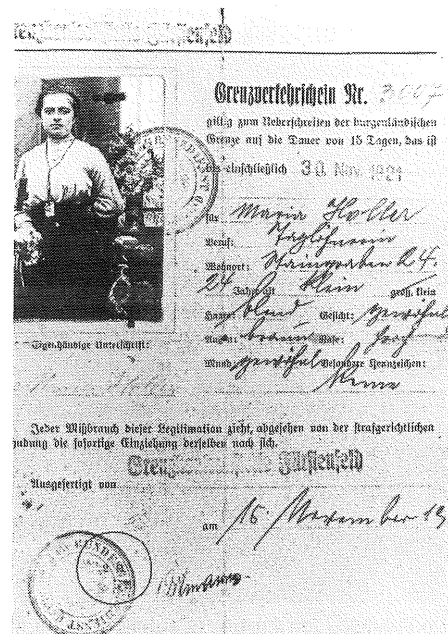 Fürstenfeld
Grenzverkehrschein Nr. 3007
gültig zum Ueberschreiten der burgenländischen
Grenze auf die Dauer von 15 Tagen, das ist
bis einschließlich 30. Nov. 1921
für Maria Holler
Beruf: Taglöhnerin
Wohnort:
24 Jahre alt klein groß, klein
Haare: blond Gesicht: gewöhnl
Augen: braun Nase:
Mund gewöhnl Besondere Kennzeichen:
Keine
Eigenhändige Unterschrift:
Maria Holler
Jeder Mißbrauch dieser Legitimation zieht, abgesehen von der strafgerichtlichen
die sofortige Einziehung derselben nach sich.
Fürstenfeld
Ausgefertigt von
am 15. November 19